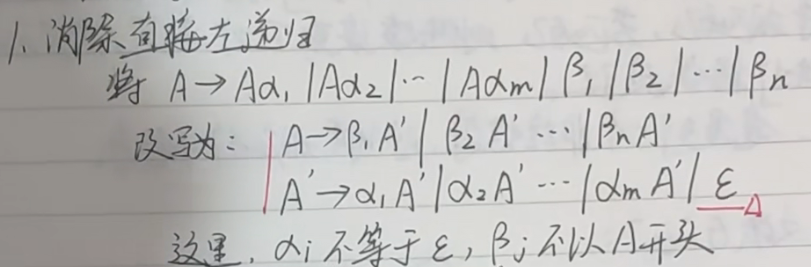 1. 消除直接左递归
将 A→Aα₁|Aα₂|⋯|Aαm|β₁|β₂|⋯|βn
改写为: A→β₁A'|β₂A'⋯|βnA'
A'→α₁A'|α₂A'⋯|αmA'|ε
这里, αi不等于ε, βj不以A开头